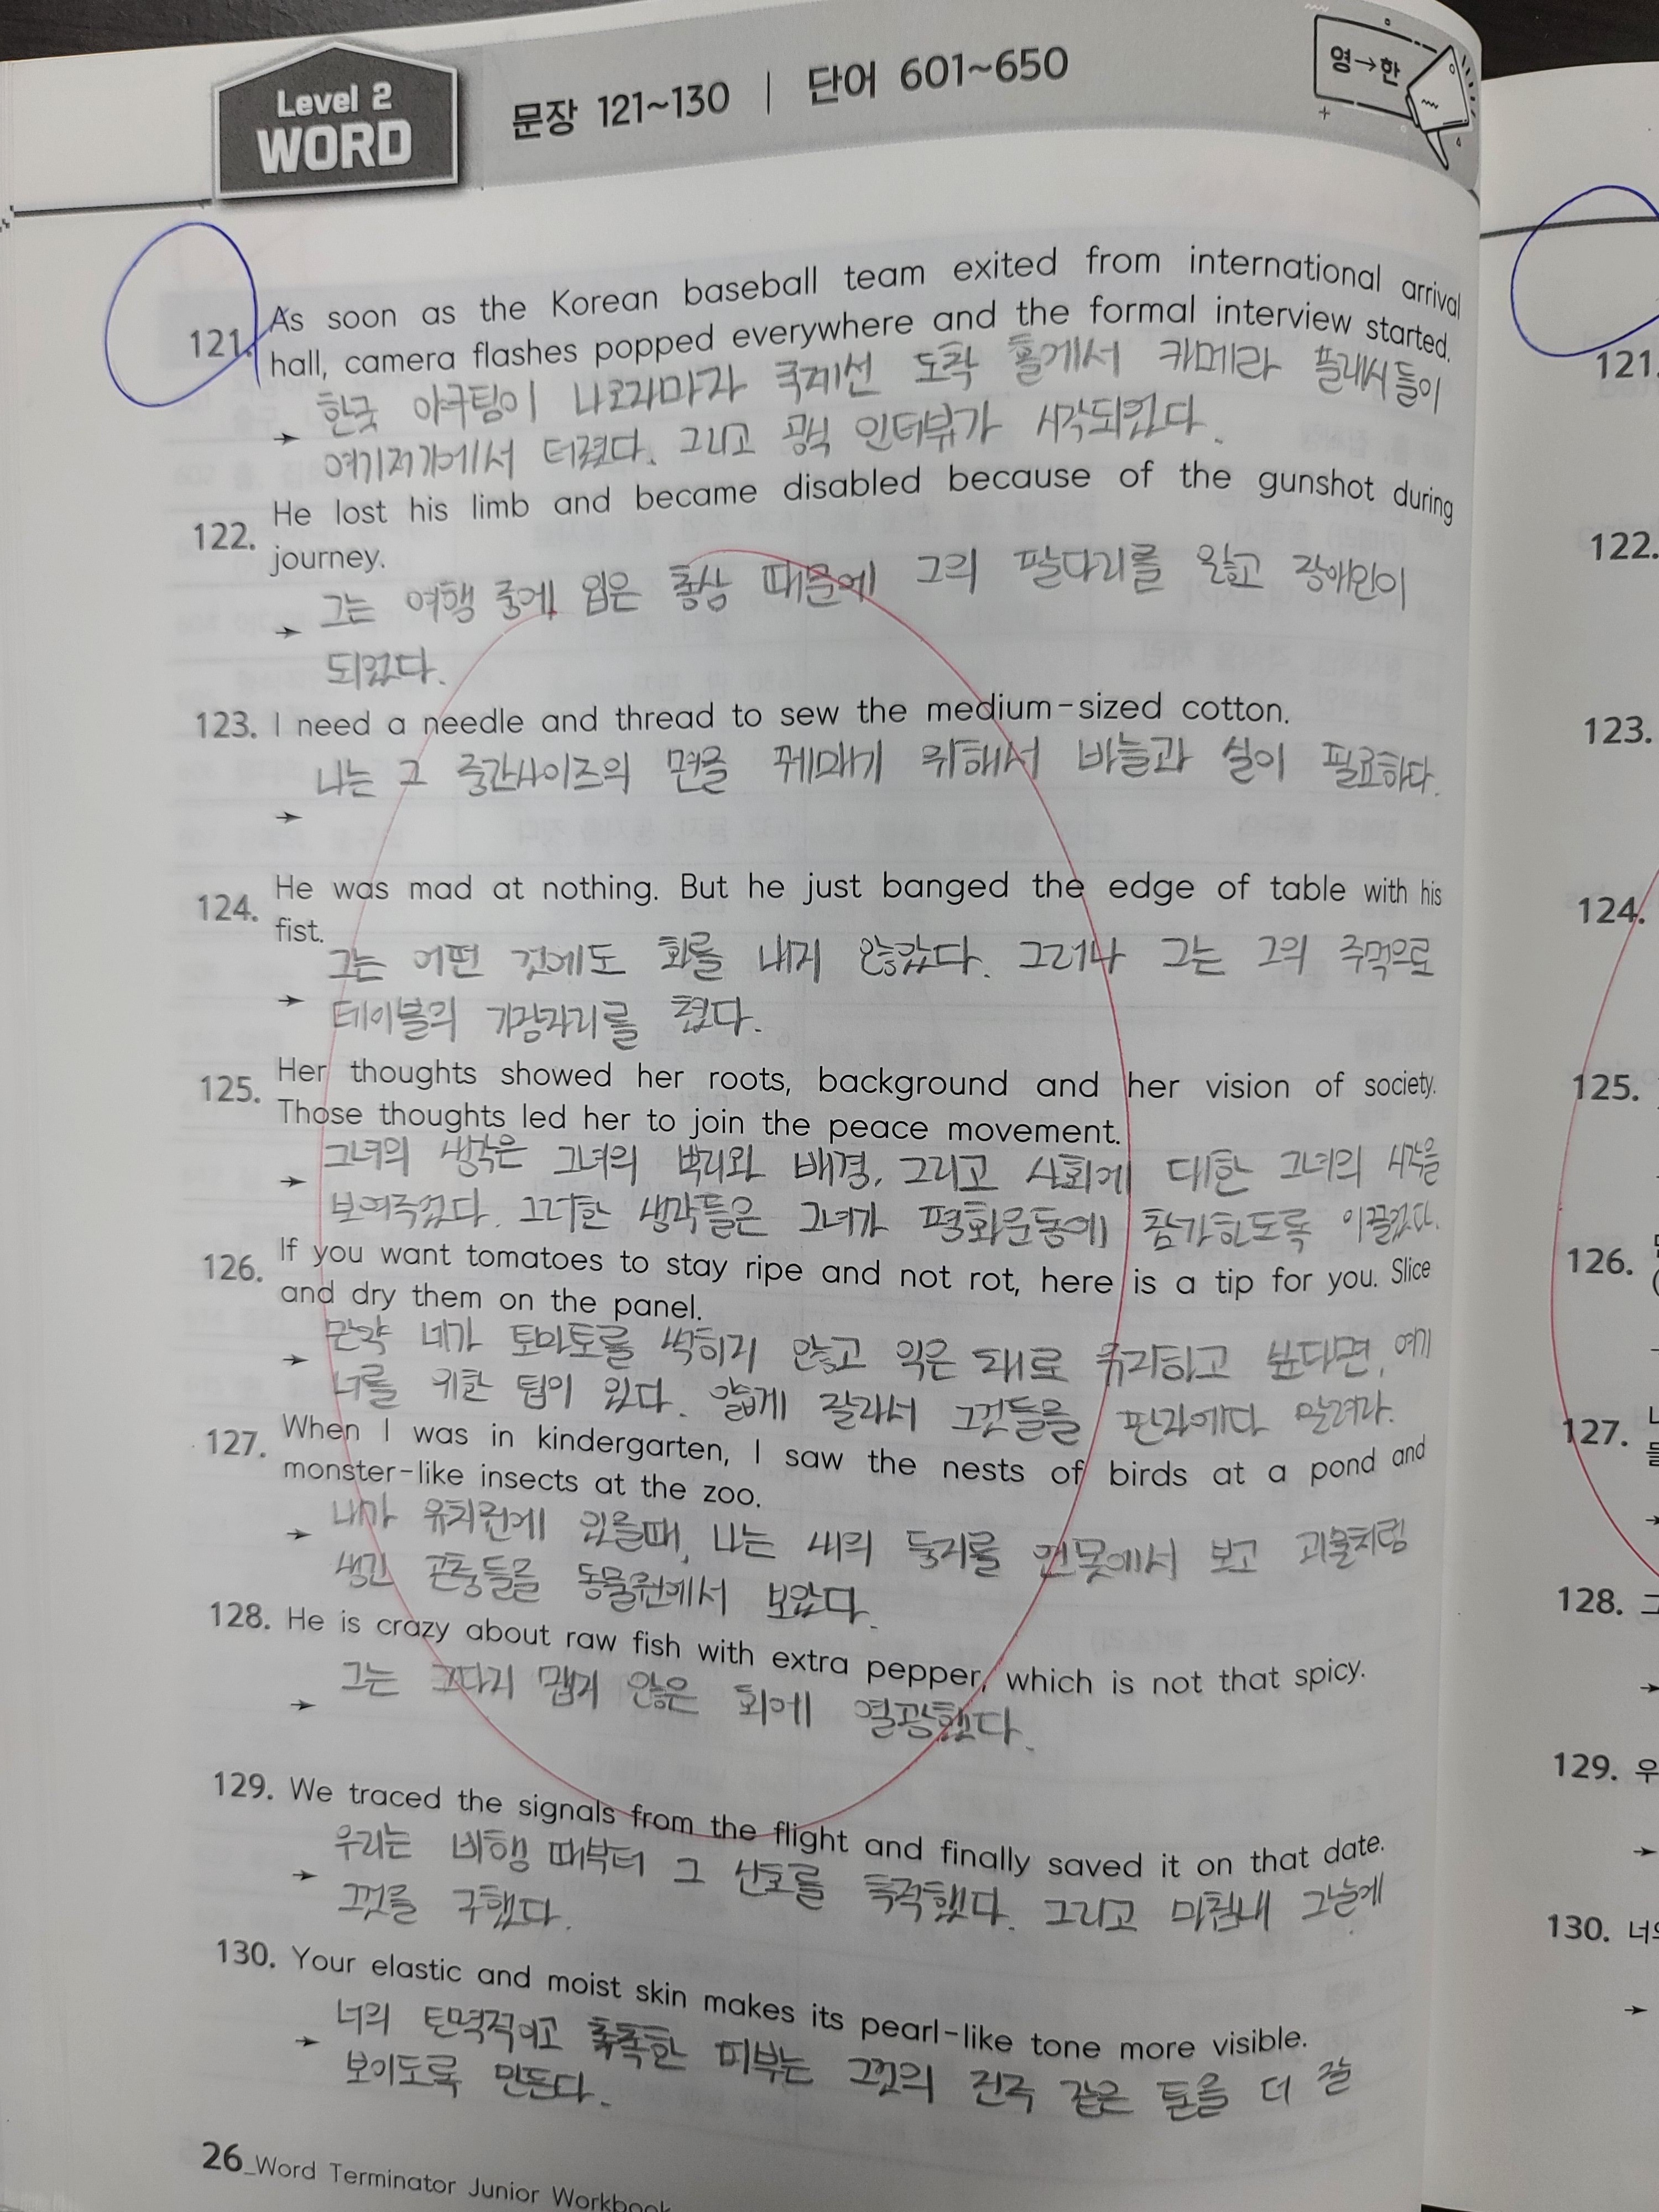 Level 2
WORD
문장 121~130 | 단어 601~650
영→한
121. As soon as the Korean baseball team exited from international arrival
hall, camera flashes popped everywhere and the formal interview started.
한국 야구팀이 나오자마자 국제선 도착 홀에서 카메라 플래시들이
→ 여기저기에서 터졌다. 그리고 공식 인터뷰가 시작되었다.
122. He lost his limb and became disabled because of the gunshot during
journey.
→ 그는 여행 중에 입은 총상 때문에 그의 팔다리를 잃고 장애인이
되었다.
123. I need a needle and thread to sew the medium-sized cotton.
나는 그 중간사이즈의 면을 꿰매기 위해서 바늘과 실이 필요하다.
→
124. He was mad at nothing. But he just banged the edge of table with his
fist.
그는 어떤 것에도 화를 내지 않았다. 그러나 그는 그의 주먹으로
→ 테이블의 가장자리를 쳤다.
125. Her thoughts showed her roots, background and her vision of society.
Those thoughts led her to join the peace movement.
→ 그녀의 생각은 그녀의 뿌리와 배경, 그리고 사회에 대한 그녀의 시각을
보여주었다. 그러한 생각들은 그녀가 평화운동에 참가하도록 이끌었다.
126. If you want tomatoes to stay ripe and not rot, here is a tip for you. Slice
and dry them on the panel.
→ 만약 네가 토마토를 썩히지 않고 익은 채로 유지하고 싶다면, 여기
너를 위한 팁이 있다. 얇게 잘라서 그것들을 판자에다 말려라.
127. When I was in kindergarten, I saw the nests of birds at a pond and
monster-like insects at the zoo.
→ 내가 유치원에 있을때, 나는 새의 둥지를 연못에서 보고 괴물처럼
생긴 곤충들을 동물원에서 보았다.
128. He is crazy about raw fish with extra pepper, which is not that spicy.
→ 그는 그다지 맵지 않은 회에 열광했다.
129. We traced the signals from the flight and finally saved it on that date.
→ 우리는 비행 때부터 그 신호를 추적했다. 그리고 마침내 그날에
그것를 구했다.
130. Your elastic and moist skin makes its pearl-like tone more visible.
→ 너의 탄력적이고 촉촉한 피부는 그것의 진주 같은 톤을 더 잘
보이도록 만든다.
26_Word Terminator Junior Workbook
121.
122.
123.
124.
125.
126.
127.
128. 그
129. 우
→
130. 너의
→